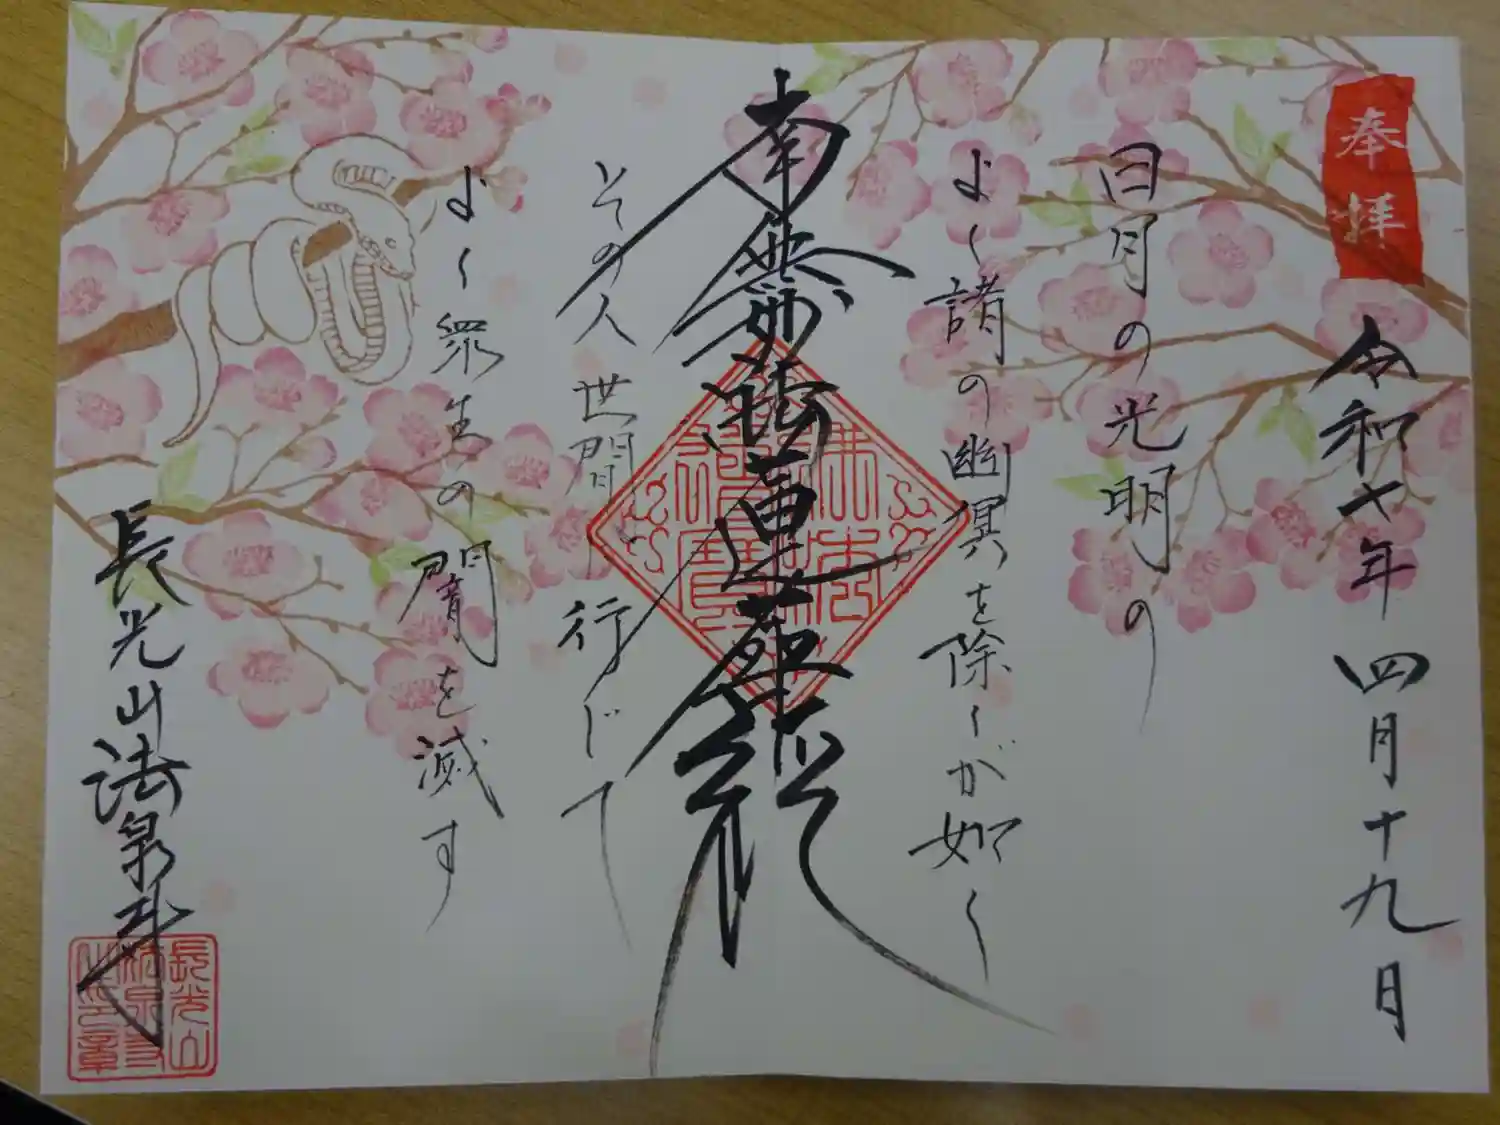 奉拝
令和七年四月十九日
日月の光明の
よく諸の幽冥を除くが如く
南無妙法蓮華経
その人世間に行じて
よく衆生の闇を滅す
長光山法泉寺
長光山
法泉寺
之印章